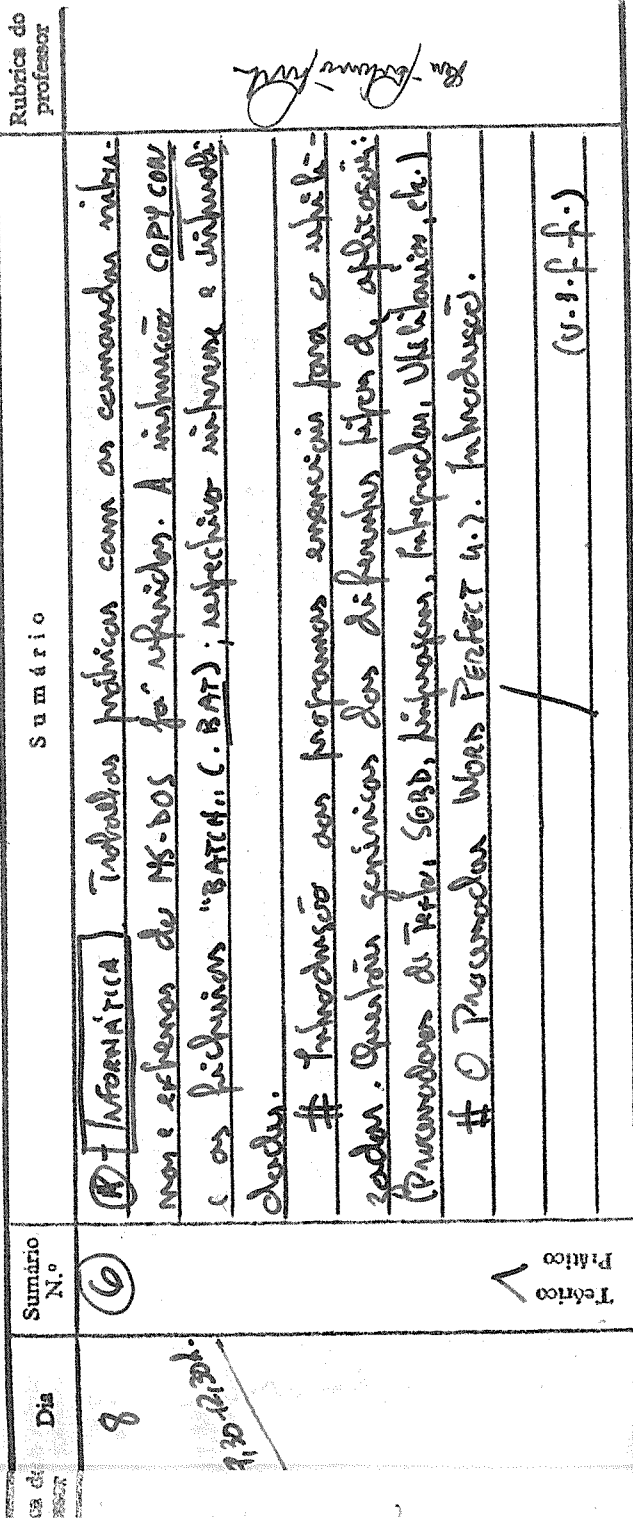 ca de
Dia
Sumário
N.º
Sumário
Rubrica do
professor
8
9,30-12,30h.
6
Teórico
Prático
(A) - INFORMÁTICA) Trabalhos práticos com os comandos inter-
nos e externos do MS-DOS já referidos. A instrução COPY CON
e os ficheiros "BATCH" (.BAT); respectivo interesse e
# Introdução aos programas essenciais para o
zador. Questões genéricas dos diferentes tipos de
(Processadores de Texto, SGBD, Linguagens, Integrados, Utilitários, etc.)
# O Processador WORD PERFECT 4.2. Introdução.
(v.s.f.f.)